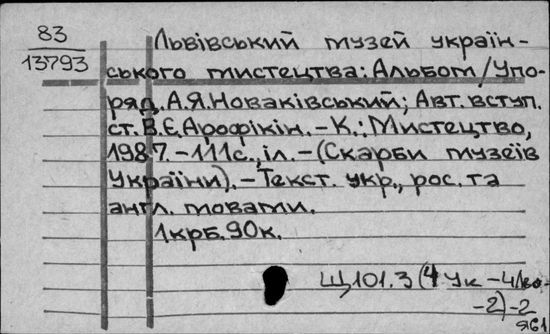 83
13793
Львівський музей україн-
ського мистецтва: Альбом/Упо-
ряд. А.Я.Новаківський; Авт. вступ.
ст. В.Є.Арофікін. – К.: Мистецтво,
1987. – 111с., іл. – (Скарби музеїв
України). – Текст. укр., рос. та
англ. мовами.
1крб. 90к.
Щ101.3(4Ук
-2)-2
я61